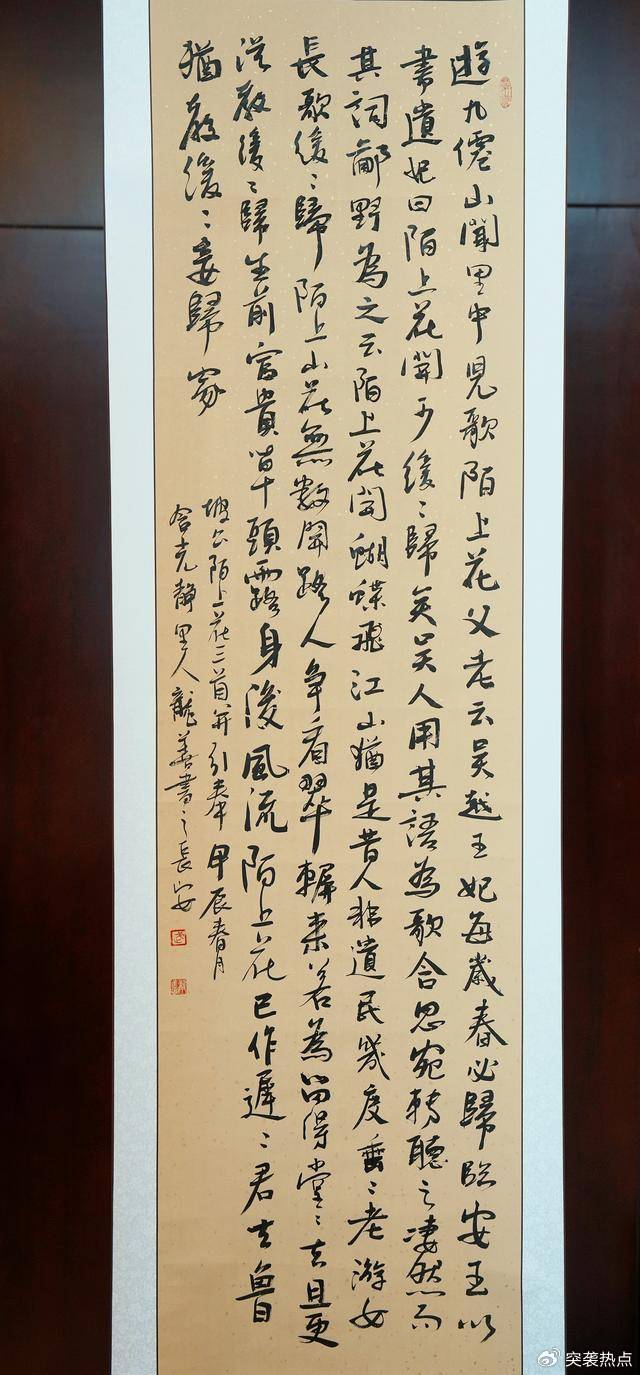 遊九僊山聞里中児歌陌上花父老云吴越王妃每歲春必歸臨安王以
書遺妃曰陌上花開可緩〻歸矣吴人用其語為歌含思宛轉聽之凄然而
其詞鄙野為之云陌上花開蝴蝶飛江山猶是昔人非遺民幾度垂〻老游女
長歌緩〻歸 陌上山花無數開路人争看翠輧来若為留得堂〻去且更
從教緩〻歸生前富貴草頭露身後風流陌上花已作遲〻君去魯
猶教緩〻妾歸家
坡公陌上花三首并引 甲辰春月
静里人龍善書之長安
突袭热点